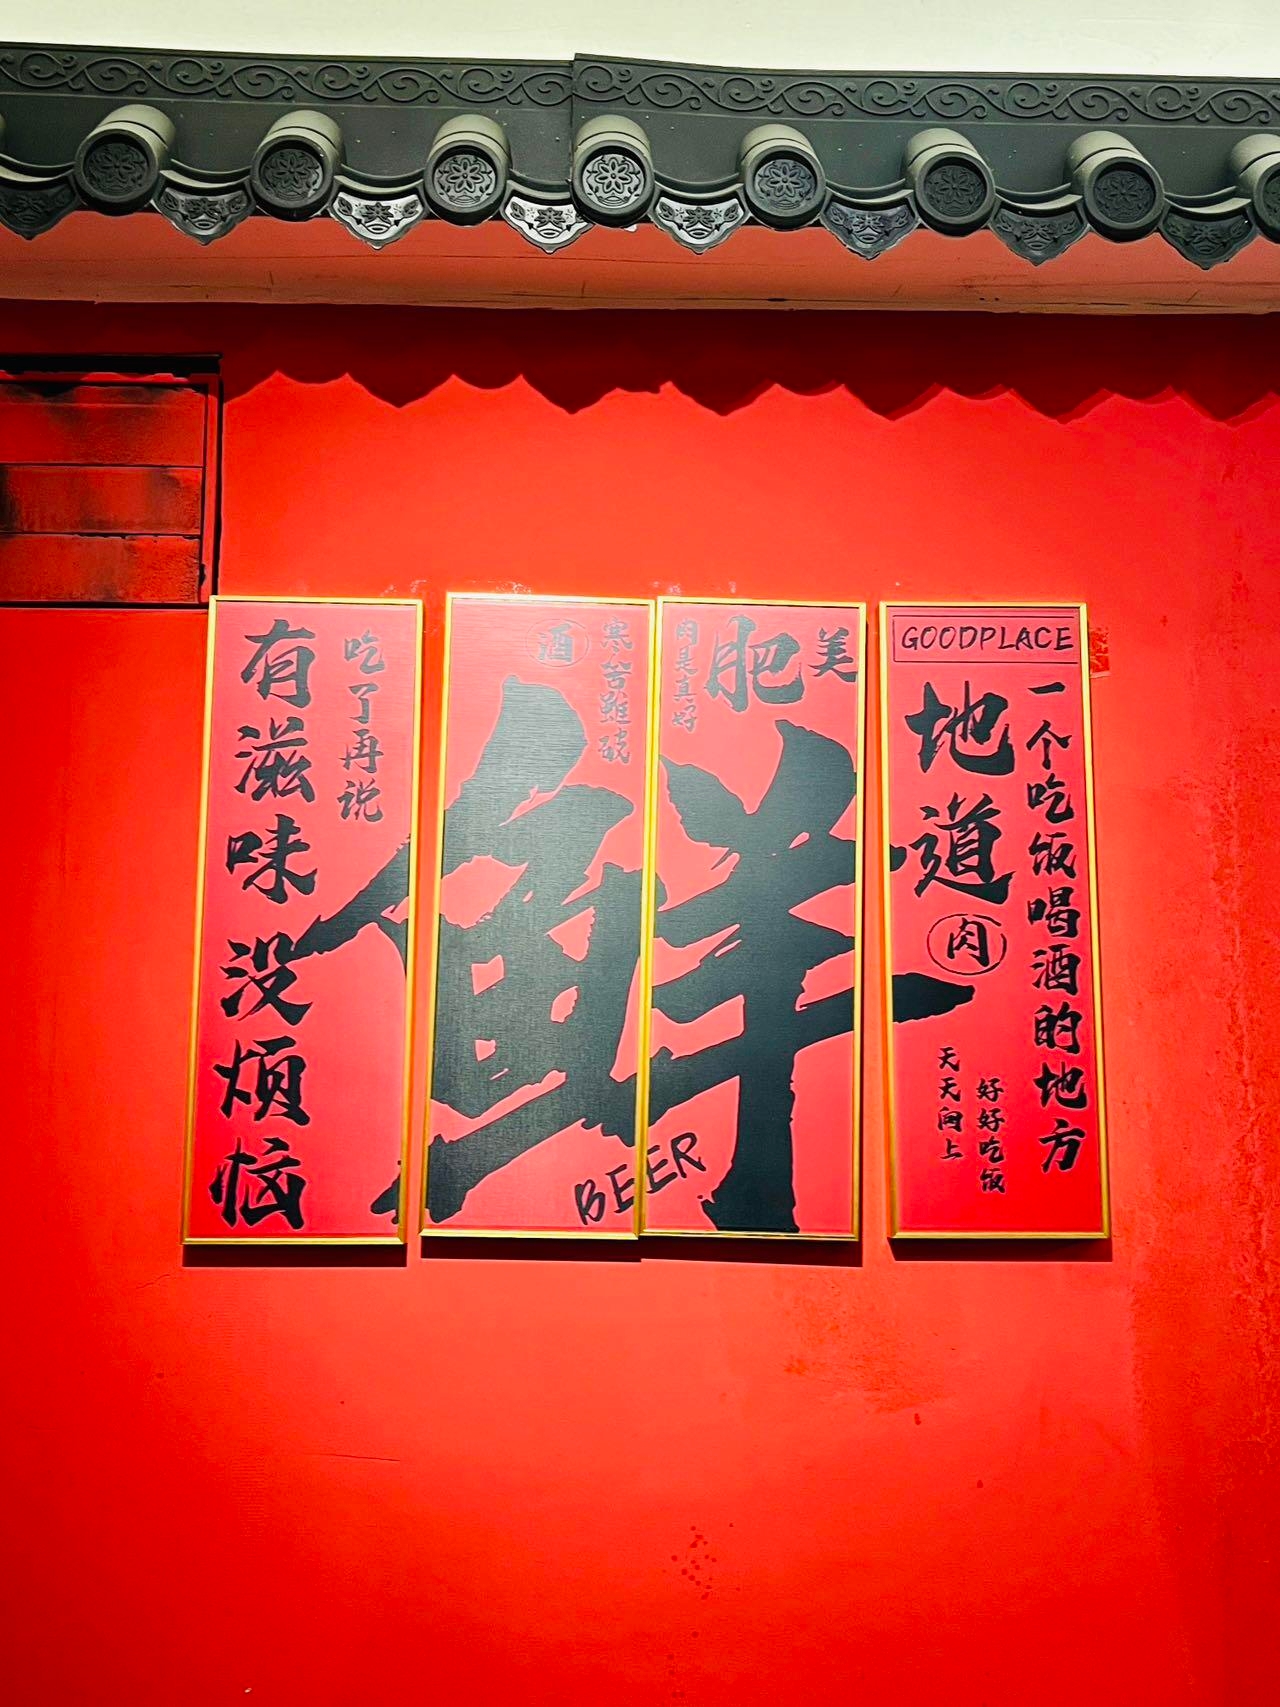 GOODPLACE
一个吃饭喝酒的地方
地道
肉
好好吃饭
天天向上
美
肥
肉是真好
鲜
寒窑雖破
酒
BEER
吃了再说
有滋味没烦恼